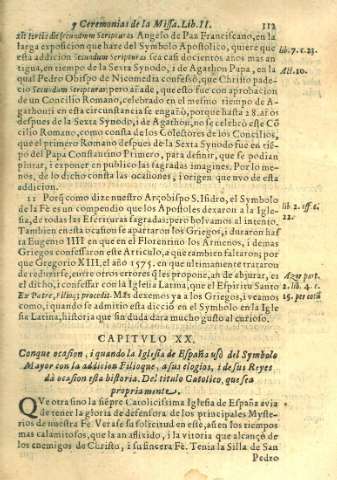 y Ceremonias de la Missa. Lib. II. 112
xit tertia die secundum Scripturas. Angelo de Paz Franciscano, en la
larga exposicion que haze del Symbolo Apostolico, quiere que
esta addicion secundum scripturas sea casi docientos anos mas an
tigua, en tiempo de la Sexta Synodo, i de Agathon Papa, en la
qual Pedro Obispo de Nicomedia confessò, que Christo pade-
ciò secundum Scripturas: pero añade, que esto fue con aprobacion
de un Concilio Romano, celebrado en el mesmo tiempo de A-
gathon: i en esta circunstancia se engañò, porque hasta 28. años
despues de la Sexta Synodo, i de Agathon, no se celebrò este Cō
cilio Romano, como consta de los Colectores de los Concilios,
que el primero Romano despues de la Sexta Synodo fue en tiē-
po del Papa Constantino Primero, para definir, que se podian
pintar, i exponer en publico las sagradas imagines. Por lo me-
nos, de lo dicho consta las ocasiones, i origen que uvo de esta
addicion.
lib. 7. c. 23.
Act. 10.
11 Porq̃ como dize nuestro Arçobispo S. Isidro, el Symbolo
de la Fè es un compendio que los Apostoles dexaron a la Igle-
sia, de todas las Escrituras sagradas: pero bolvamos al intento.
Tambien en esta ocasion se apartaron los Griegos, i duraron has
ta Eugenio IIII en que en el Florentino los Armenos, i demas
Griegos confessaron este Articulo, a que tambien faltaron; por
que Gregorio XIII. el año 1575. en que ultimamente trataron
de reduzirse, entre otros errores q̃ les propone, an de abjurar, es
el dicho, i confessar con la Iglesia Latina, que el Espiritu Santo
Ex Patre, Filioq; procedit. Mas dexemos ya a los Griegos, i veamos
como, i quando se admitio esta diccion en el Symbolo en la Igle
sia Latina, historia que sin duda darà mucho gusto al curioso.
lib. 2. off. c.
22.
Azor part.
2. lib. 4. c.
CAPITVLO XX.
Con que ocasion, i quando la Iglesia de España usò del Symbolo
Mayor con la addicion Filioque, a sus elogios, i de sus Reyes
dà ocasion esta historia. Del titulo Catolico, que sea
propriamente.
QVe otra sino la siēpre Catolicissima Iglesia de España avia
de tener la gloria de defensora de los principales Myste-
rios de nuestra Fè. Verase su solicitud en este, asi en los tiempos
mas calamitosos, que la an aflixido, i la vitoria que alcançò de
los enemigos de Christo, i su sincera Fè. Tenia la Silla de San
Pedro